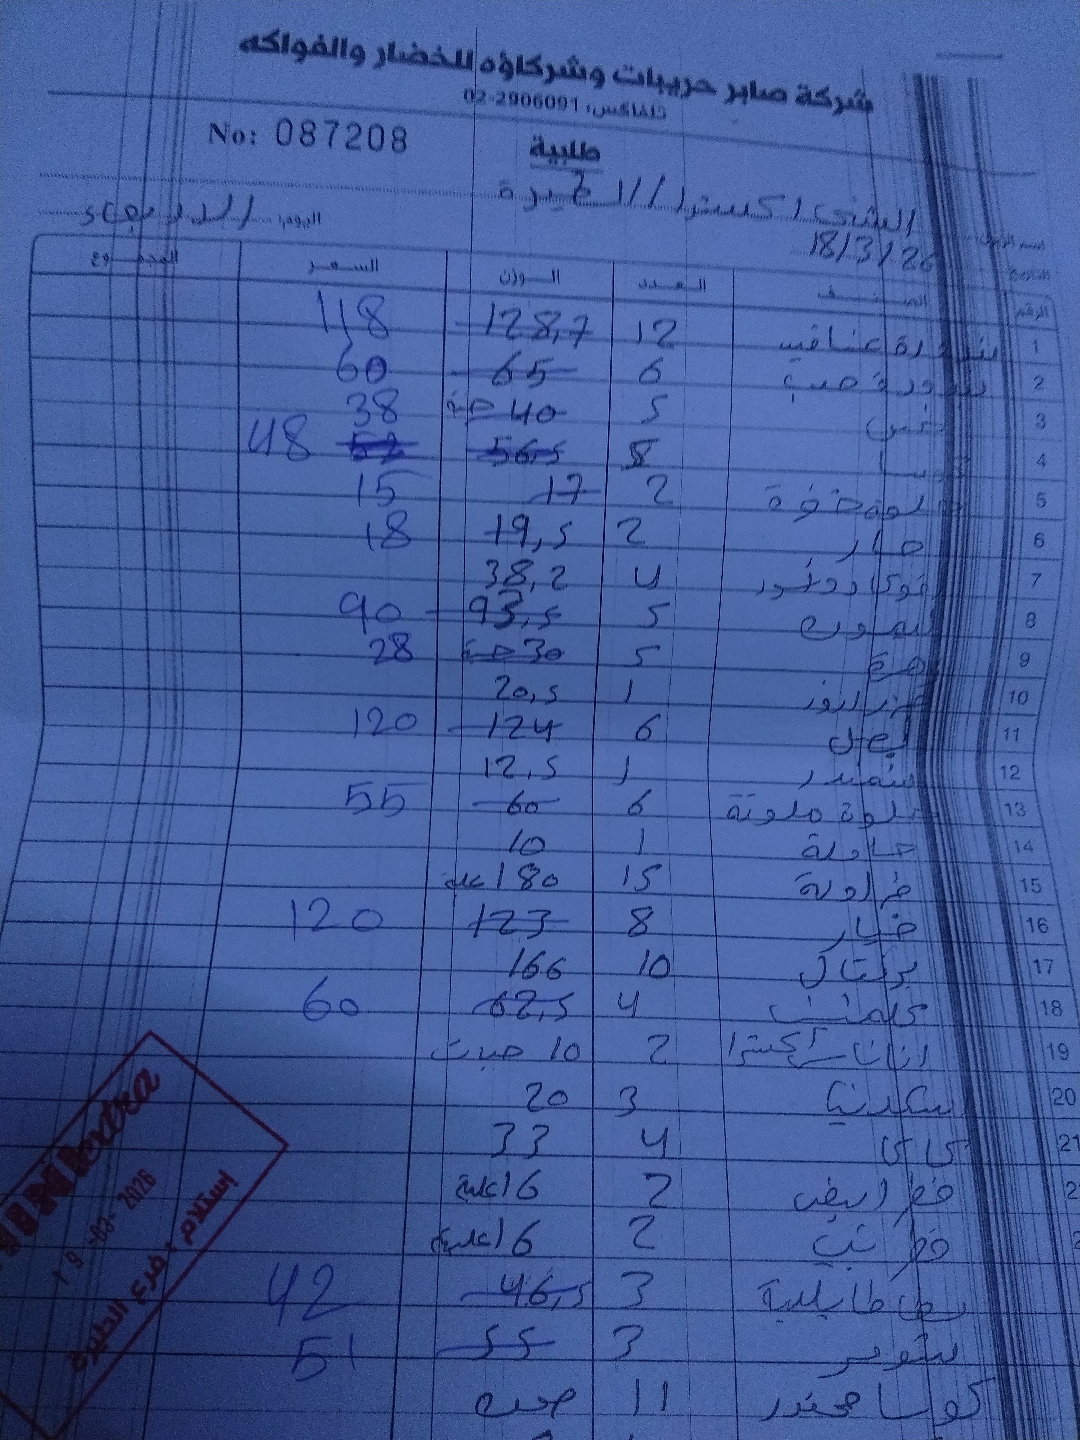 شركة صابر حريبات وشركاؤه للخضار والفواكه
تلفاكس: 02-2906091
No: 087208
طلبية
الشني اكسترا / الطيرة
اليوم: الاربعاء
التاريخ 18/3/26
الرقم الصنف العدد الوزن السعر المجموع
1 بندورة عناقيد 12 128,7 118
2 بندورة حب 6 65 60
3 خس 5 40 حبة 38
4 5 56,5 52 48
5 حلوة 2 17 15
6 حار 2 19,5 18
7 4 38,2
8 ليمون 5 93,5 90
9 5 30 حبة 28
10 جزر 1 20,5
11 بصل 6 124 120
12 شمندر 1 12,5
13 حلوة ملونة 6 60 55
14 1 10
15 فراولة 15 180 علبة
16 خيار 8 123 120
17 برتقال 10 166
18 كلمنتينا 4 62,5 60
19 اناناس اكسترا 2 10 حبات
20 اسكدنيا 3 20
21 4 33
فطر ابيض 2 16 علبة
فطر بني 2 16 علبة
3 46,5 42
بومر 3 55 51
كوسا 11 حبة
extra
19 -03- 2026
استلام - فرع الطيرة